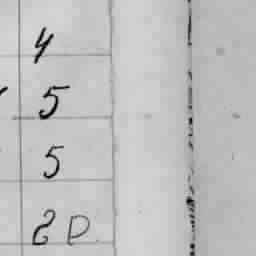 4
5
5
2 D